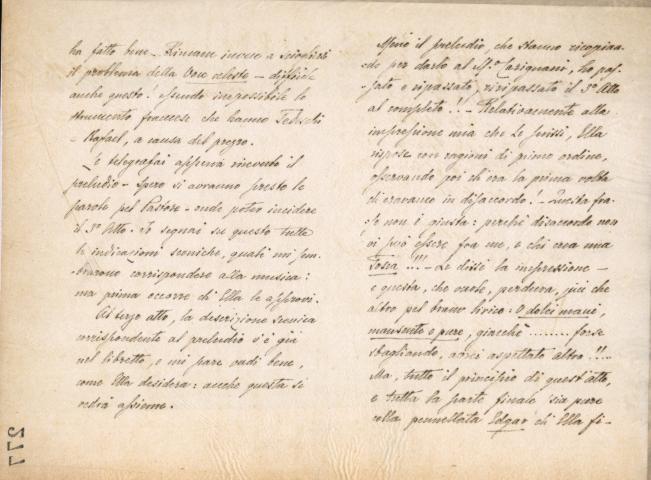 ha fatto bene – Rimane invece a sciogliersi
il problema della Voce celeste – difficile
anche questo. Essendo impossibile lo
strumento francese che hanno Tedeschi
– Rafael, a causa del prezzo.
Le telegrafai appena ricevuto il
preludio – Spero si avranno presto le
parole pel Pastore – onde poter incidere
il 3º Atto. Io segnai su questo tutte
le indicazioni sceniche, quali mi sem-
-bravano corrispondere alla musica:
ma prima occorre di Ella le approvi.
Al terzo atto, la descrizione scenica
corrispondente al preludio s'è già
nel libretto, e mi pare vadi bene,
come Ella desidera: anche questa si
vedrà assieme.
277
Meno il preludio, che stanno ricopian-
-do per darlo al Mº Carignani, ho pas-
-sato e ripassato, ririspassato il 3º Atto
al completo!! – Relativamente alla
impressione mia che Le scrissi, Ella
rispose con ragioni di primo ordine,
osservando poi ch'era la prima volta
ch'eravamo in disaccordo! – Questa fra-
-se non è giusta: perchè disaccordo non
vi può essere fra me, e chi crea una
Tosca!!! – Le dissi la impressione –
e questa, che vuole, perdura, più che
altro pel brano lirico: O dolci mani,
mansuete e pure, giacchè ......... forse
sbagliando, avrei aspettato altro!!..
Ma, tutto il principio di quest'atto,
e tutta la parte finale sia pure
colla pennellata Edgar ch'Ella fi-